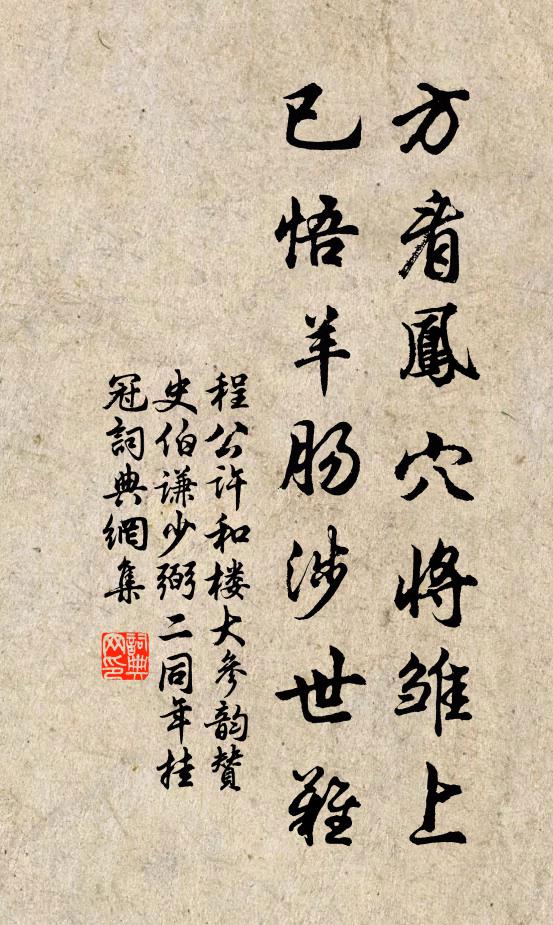 方看鳳穴將雛上
已悟羊腸涉世難
程公许和楼大参韵赞
史伯谦少弼二同年挂
冠詞典網集
詞典網印